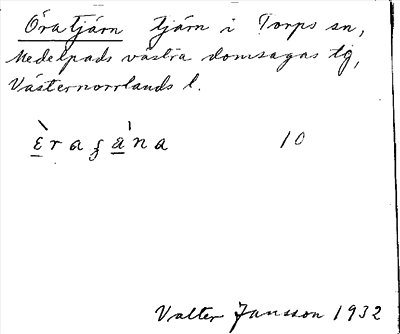 Öratjärn tjärn i Torps sn,
Medelpads västra domsagas tg,
Västernorrlands l.
ὲraʒa̍na 10
Valter Jansson 1932